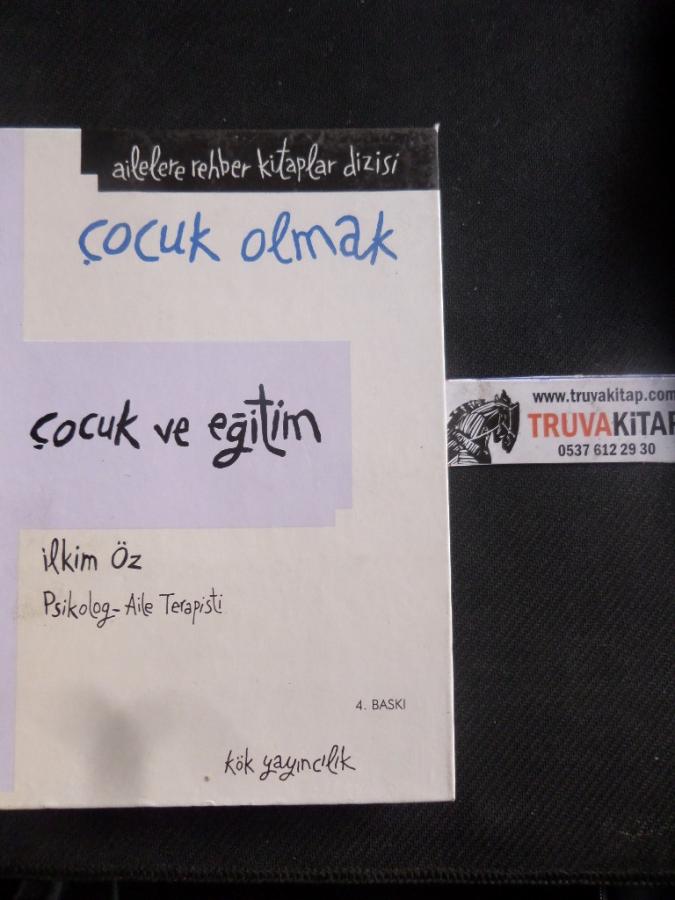 ailelere rehber kitaplar dizisi
çocuk olmak
çocuk ve eğitim
ilkim Öz
Psikolog-Aile Terapisti
4. BASKI
kök yayıncılık
www.truvakitap.com
TRUVAKiTAP
0537 612 29 30